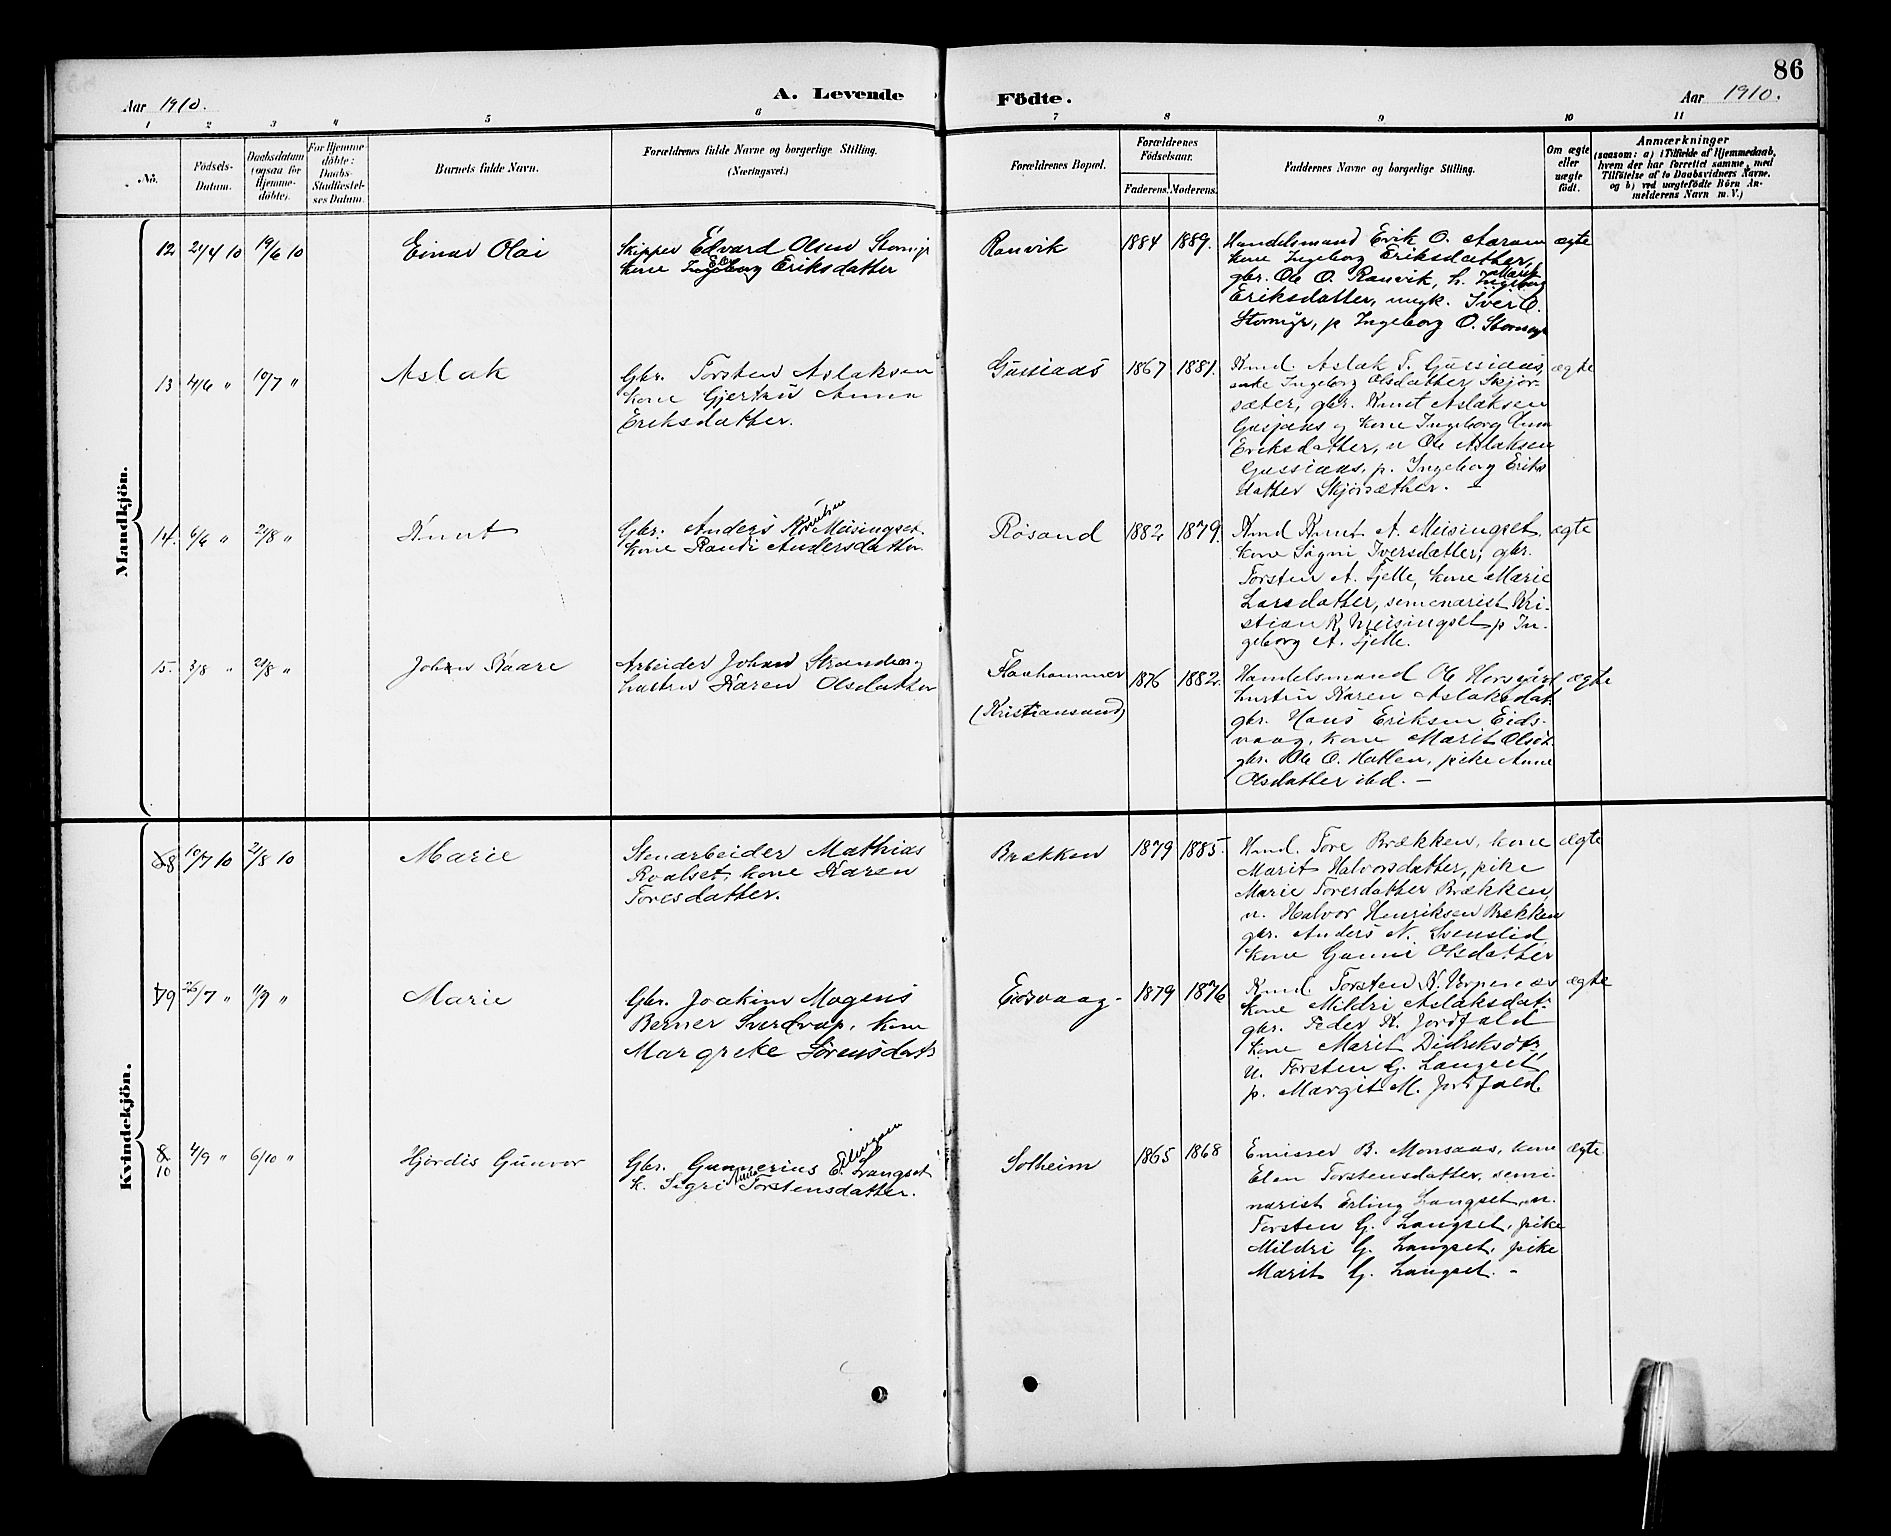 86
Aar 1910.
A. Levende Födte.
Aar 1910.
1 2 3 4 5 6 7 8 9 10 11
No.
Födsels-
Datum.
Daabsdatum
(ogsaa for
Hjemme-
döbte).
For Hjemme-
döbte:
Daabs-
Stadfæstel-
ses Datum.
Barnets fulde Navn.
Forældrenes fulde Navne og borgerlige Stilling.
(Næringsvei.)
Forældrenes Bopæl.
Forældrenes
Födselsaar.
Faderens. Moderens.
Faddernes Navne og borgerlige Stilling.
Om ægte
eller
uægte
födt.
Anmærkninger
(saasom: a) i Tilfælde af Hjemmedaab,
hvem der har forrettet samme, med
Tilföielse af to Daabsvidners Navne,
og b) ved uægtefödte Börn An-
melderens Navn m. V.)
Mandkjön.
12 21/4 10 19/6 10
Einar Olai
Skipper Edvard Olsen Stormyr
kone Ingeborg Eriksdatter
Ranvik
1884 1889.
Handelsmand Erik O. Aaram
kone Ingeborg Eriksdatter,
gbr. Ole O. Ranvik, k. Marit
Eriksdatter, ungk. Iver O.
Stormyr, p Ingeborg O. Stormyr
ægte
13 4/6 " 10/7 "
Aslak
Gbr. Torsten Aslaksen
kone Gjertru Anna
Eriksdatter.
Gussiaas
1867 1881.
Kmd. Aslak T. Gussiaas,
enke Ingeborg Olsdatter Skjør-
sæter, gbr. Knut Aslaksen
Gusjaas og kone Ingeborg Anna
Eriksdatter, u Ole Aslaksen
Gussiaas, p. Ingeborg Eriks
datter Skjørsæther. –
ægte
14. 6/6 " 21/8 "
Knut
Gbr. Anders Knutsen Meisingset.
kone Randi Andersdatter
Røsand
1882 1879.
Kmd Knut A. Meisingset,
kone Signi Iversdatter, gbr.
Torsten A. Tjelle, kone Marie
Larsdatter, semenarist Kri-
stian K. Meisingset p In-
geborg A. Tjelle.
ægte
15. 3/8 " 28/8 "
Johan Kaare
Arbeider Johan Strandberg
hustru Karen Olsdatter
Flaahammer
(Kristiansund)
1876 1882.
Handelsmand Ole
hustru Karen Aslaksdat.
gbr. Hans Eriksen Eids-
vaag, kone Marit Olsdt.
gbr. Ole O. Hatlen, pike Anne
Olsdatter ibd. –
ægte
Kvindekjön.
8 10/7 10 21/8 10
Marie
Stenarbeider Mathias
Roalset, kone Karen
Toresdatter.
Brækken
1879 1885.
Kmd. Tore Brækken, kone
Marit Halvorsdatter, pike
Marie Toresdatter Brækken,
u. Halvor Henriksen Brækken
gbr. Anders N. Svenslid
kone Gunni Olsdatter
ægte
9 26/7 " 11/9 "
Marie
Gbr. Joakim Mogens
Berner Sverdrup, kone
Margrete Sørensdatr
Eidsvaag-
1879 1876
Kmd. Torsten K. Vorpenæs
kone Mildri Aslaksdat.
gbr. Peder K. Jordfald
kone Marit Didriksdtr
u. Torsten G. Langset
p. Margit M. Jordfald
ægte
8
10 4/9 " 6/10 "
Hjørdis Gunvor
Gbr. Gunnerius E. Langset
k. Sigri Anna Torstensdatter.
Solheim
1865 1868
Emissær B. Monsaas, kone
Elen Torstensdatter, semi-
narist Erling Langset, u.
Torsten G. Langset, pike
Mildri G. Langset, pike
Marit G. Langset. –
ægte